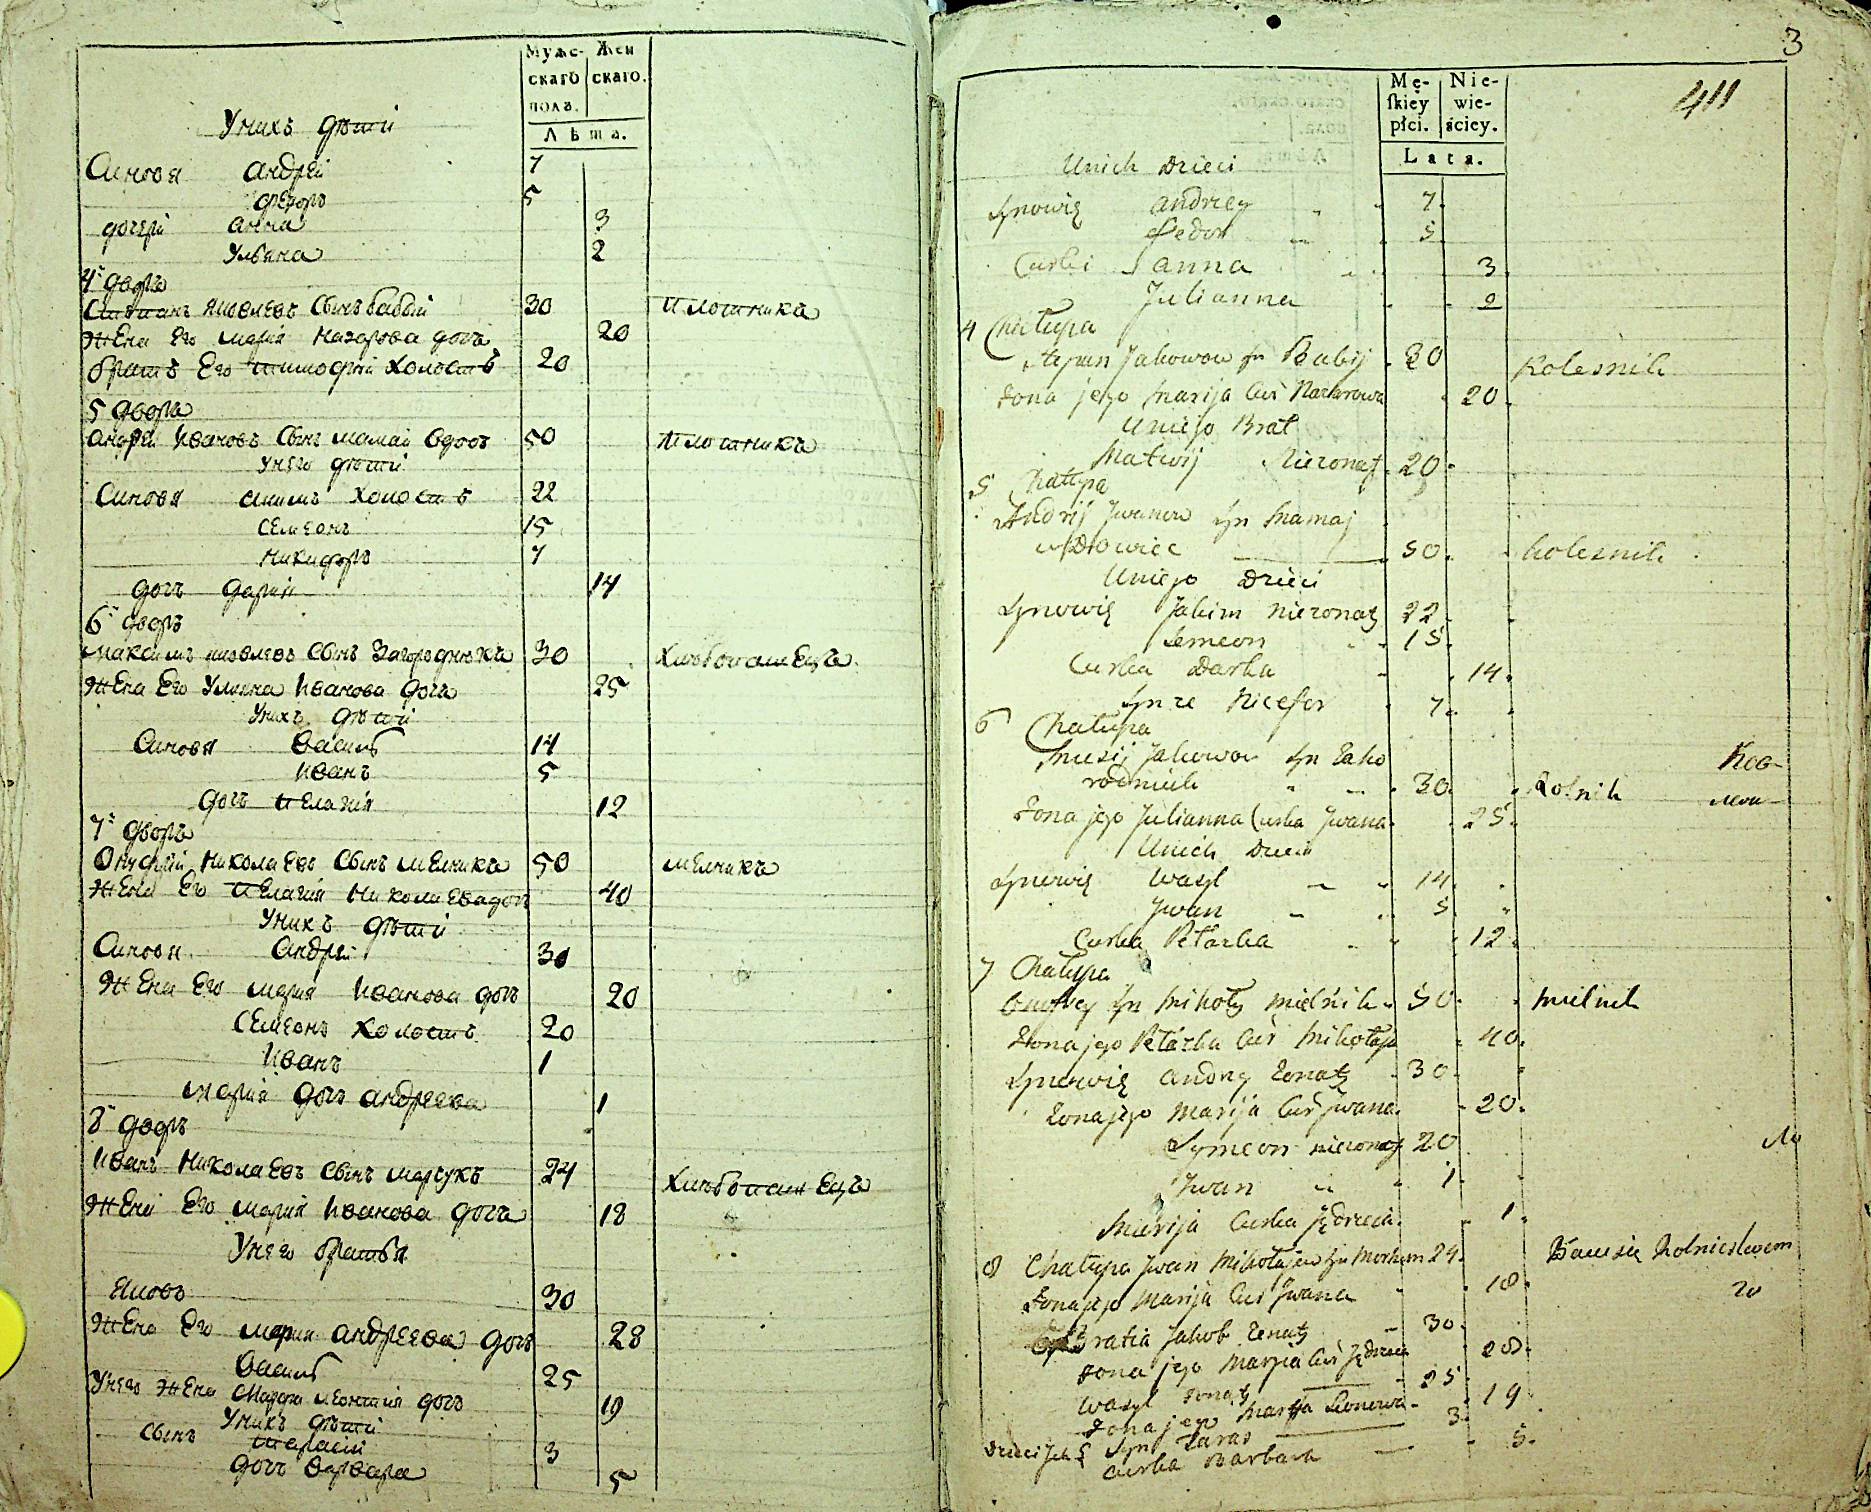 Мужс- Жен
скаго скаго.
полъ.
Лѣта.
Унихъ дѣти
Синовя андрей 7
Федоръ 5
дочери анна 3
Ульяна 2
4й дворъ
Степанъ яковлевъ сынъ бабый 30 плотникъ
жена его мария назарова дочь 20
братъ его тимофий холостъ 20
5 дворъ
андрей Ивановъ сынъ мамай вдовъ 50 плотникъ
унего дѣти
Синовя якимъ холостъ 22
Семеонъ 15
Никифоръ 7
дочь дария 14
6й дворъ
максимъ яковлевъ сынъ Загороднюкъ 30 Хлѣбопашецъ
жена его Улияна Иванова дочь 25
Унихъ дѣти
Синовя Василь 14
Иванъ 5
дочь пелагия 12
7й дворъ
Онуфрий Николаевъ сынъ мелникъ 50 мелникъ
жена его пелагия Николаева дочь 40
Унихъ дѣти
Синовя Андрей 30
жена его мария Иванова дочь 20
Семеонъ холостъ 20
Иванъ 1
мария дочь андреева 1
8й дворъ
Иванъ Николаевъ сынъ марчукъ 24 Хлѣбопашецъ
жена его мария Иванова дочь 18
Унего братья
Яковъ 30
жена его мария андреева дочь 28
Василь 25
Унего жена марфа леонтия дочь 19
Унихъ дѣти
Сынъ тарасий 3
дочь варвара 5
3
411
Mę- Nie-
skiey wie-
płci. ściey.
Lata.
Unich Dzieci
Synowię Andrzey 7
Fedor 5
Curki Anna 3
Julianna 2
4 Chałupa
Stepan Jakowow syn Babij 30 Kolesnik
Żona jego Marija Cur Nazarowa 20
Uniego Brat
Matwij Nieżonaty 20
5 Chałupa
Andrij Jwanow syn Mamaj
wdowiec 50 Kolesnik
Uniego Dzieci
Synowię Jakim nieżonaty 22
Semeon 15
Curka Darka 14
Syn że Nicefor 7
6 Chałupa
Musij Jakowow syn Zaho
rodniuk 30 Rolnik
Żona jego Julianna Curka Jwana 25
Unich Dzieci
Synowię Wasyl 14
Jwan 5
Curka Petazka 12
7 Chałupa
Onufrey syn Mikoły Mielnik 50 Mielnik
Żona jego Petazka Cur Mikołaja 40
Synowię Andry Żonaty 30
Żona jego Marija Cur Jwana 20
Symeon nieżonaty 20
Jwan 1
Marija Curka Jędrzeia 1
8 Chałupa Jwan Mikołajow syn 24 Bawisię Rolnictwem
Żona jego Marija Cur Jwana 18
Bratia Jakob Żonaty 30
Żona jego Marija Cur Jędrzeia 28
Wasyl Żonaty 25
Żona jego Marfa 19
Dzieci Syn Taras 3
Curka Barbara 5